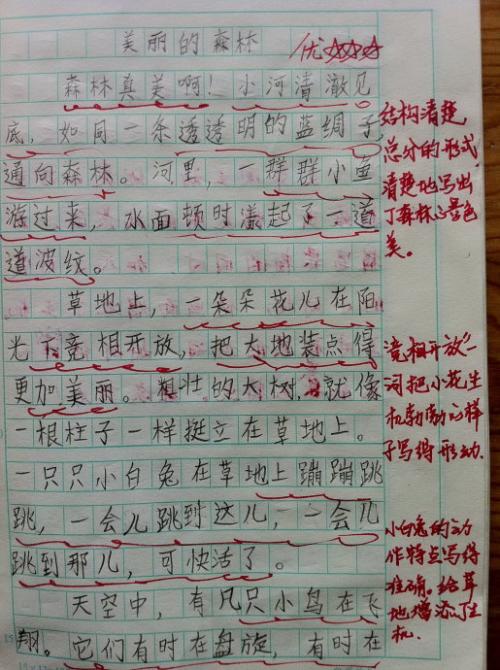 美丽的森林
优
森林真美啊！小河清澈见
底，如同一条透透明的蓝绸子，
通向森林。河里，一群群小鱼
游过来，水面顿时漾起了一道
道波纹。
草地上，一朵朵花儿在阳
光下竞相开放，把大地装点得
更加美丽。粗壮的大树，就像
一根柱子一样挺立在草地上。
一只只小白兔在草地上蹦蹦跳
跳，一会儿跳到这儿，一会儿
跳到那儿，可快活了。
天空中，有几只小鸟在飞
翔。它们有时在盘旋，有时在
结构清楚
总分的形式，
清楚地写出
了森林的景色
美。
竞相开放一
词把小花生
机勃勃的样
子写得形动。
小白兔的动
作特点写得
准确。给草
地增添了生
机。